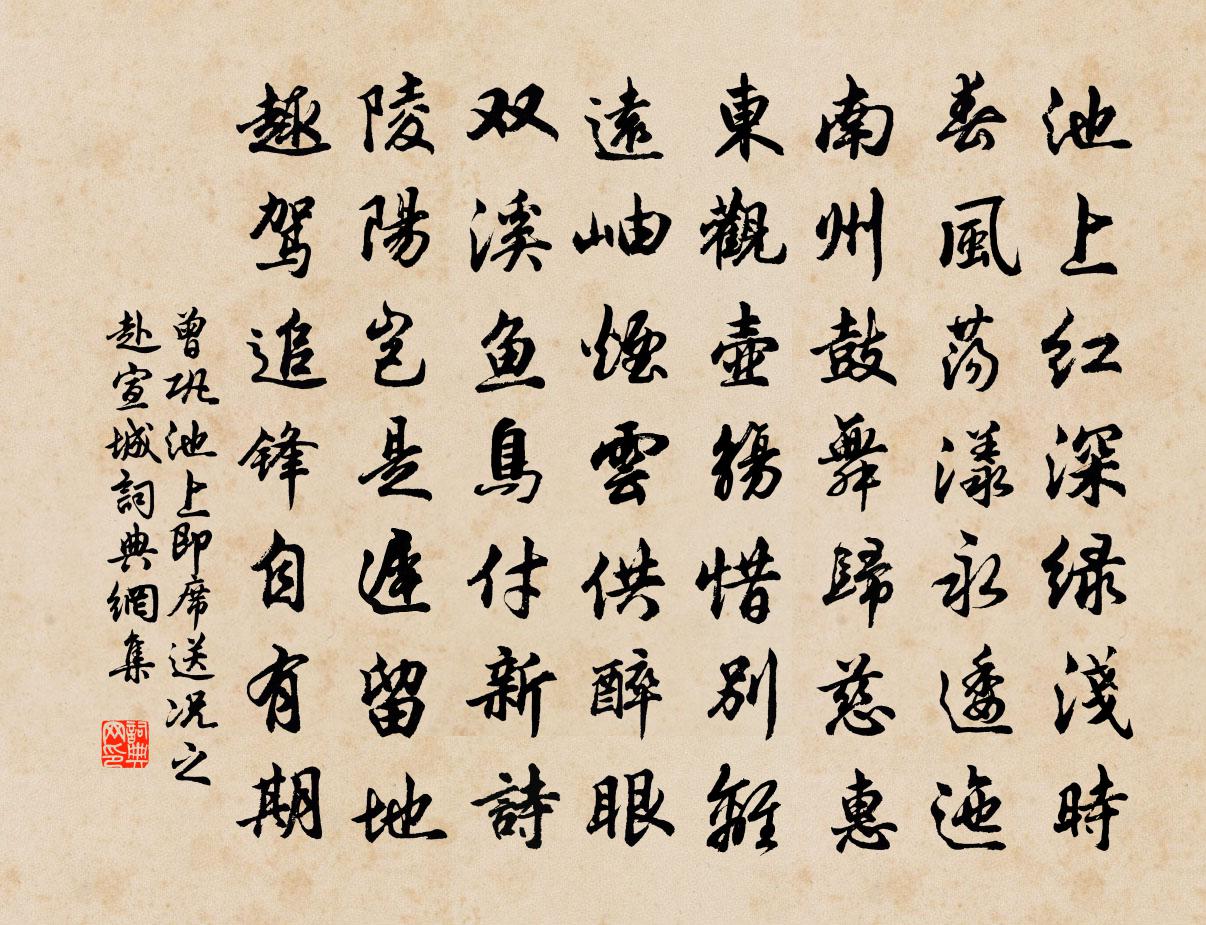 池上红深緑淺時
春風蕩漾永逶迤
南州鼓舞歸慈惠
東觀壺觴惜别離
遠岫煙雲供醉眼
双溪魚鳥付新詩
陵陽豈是遲留地
趣驾追鋒自有期
曾巩池上即席送况之
赴宣城詞典網集
詞典
网印